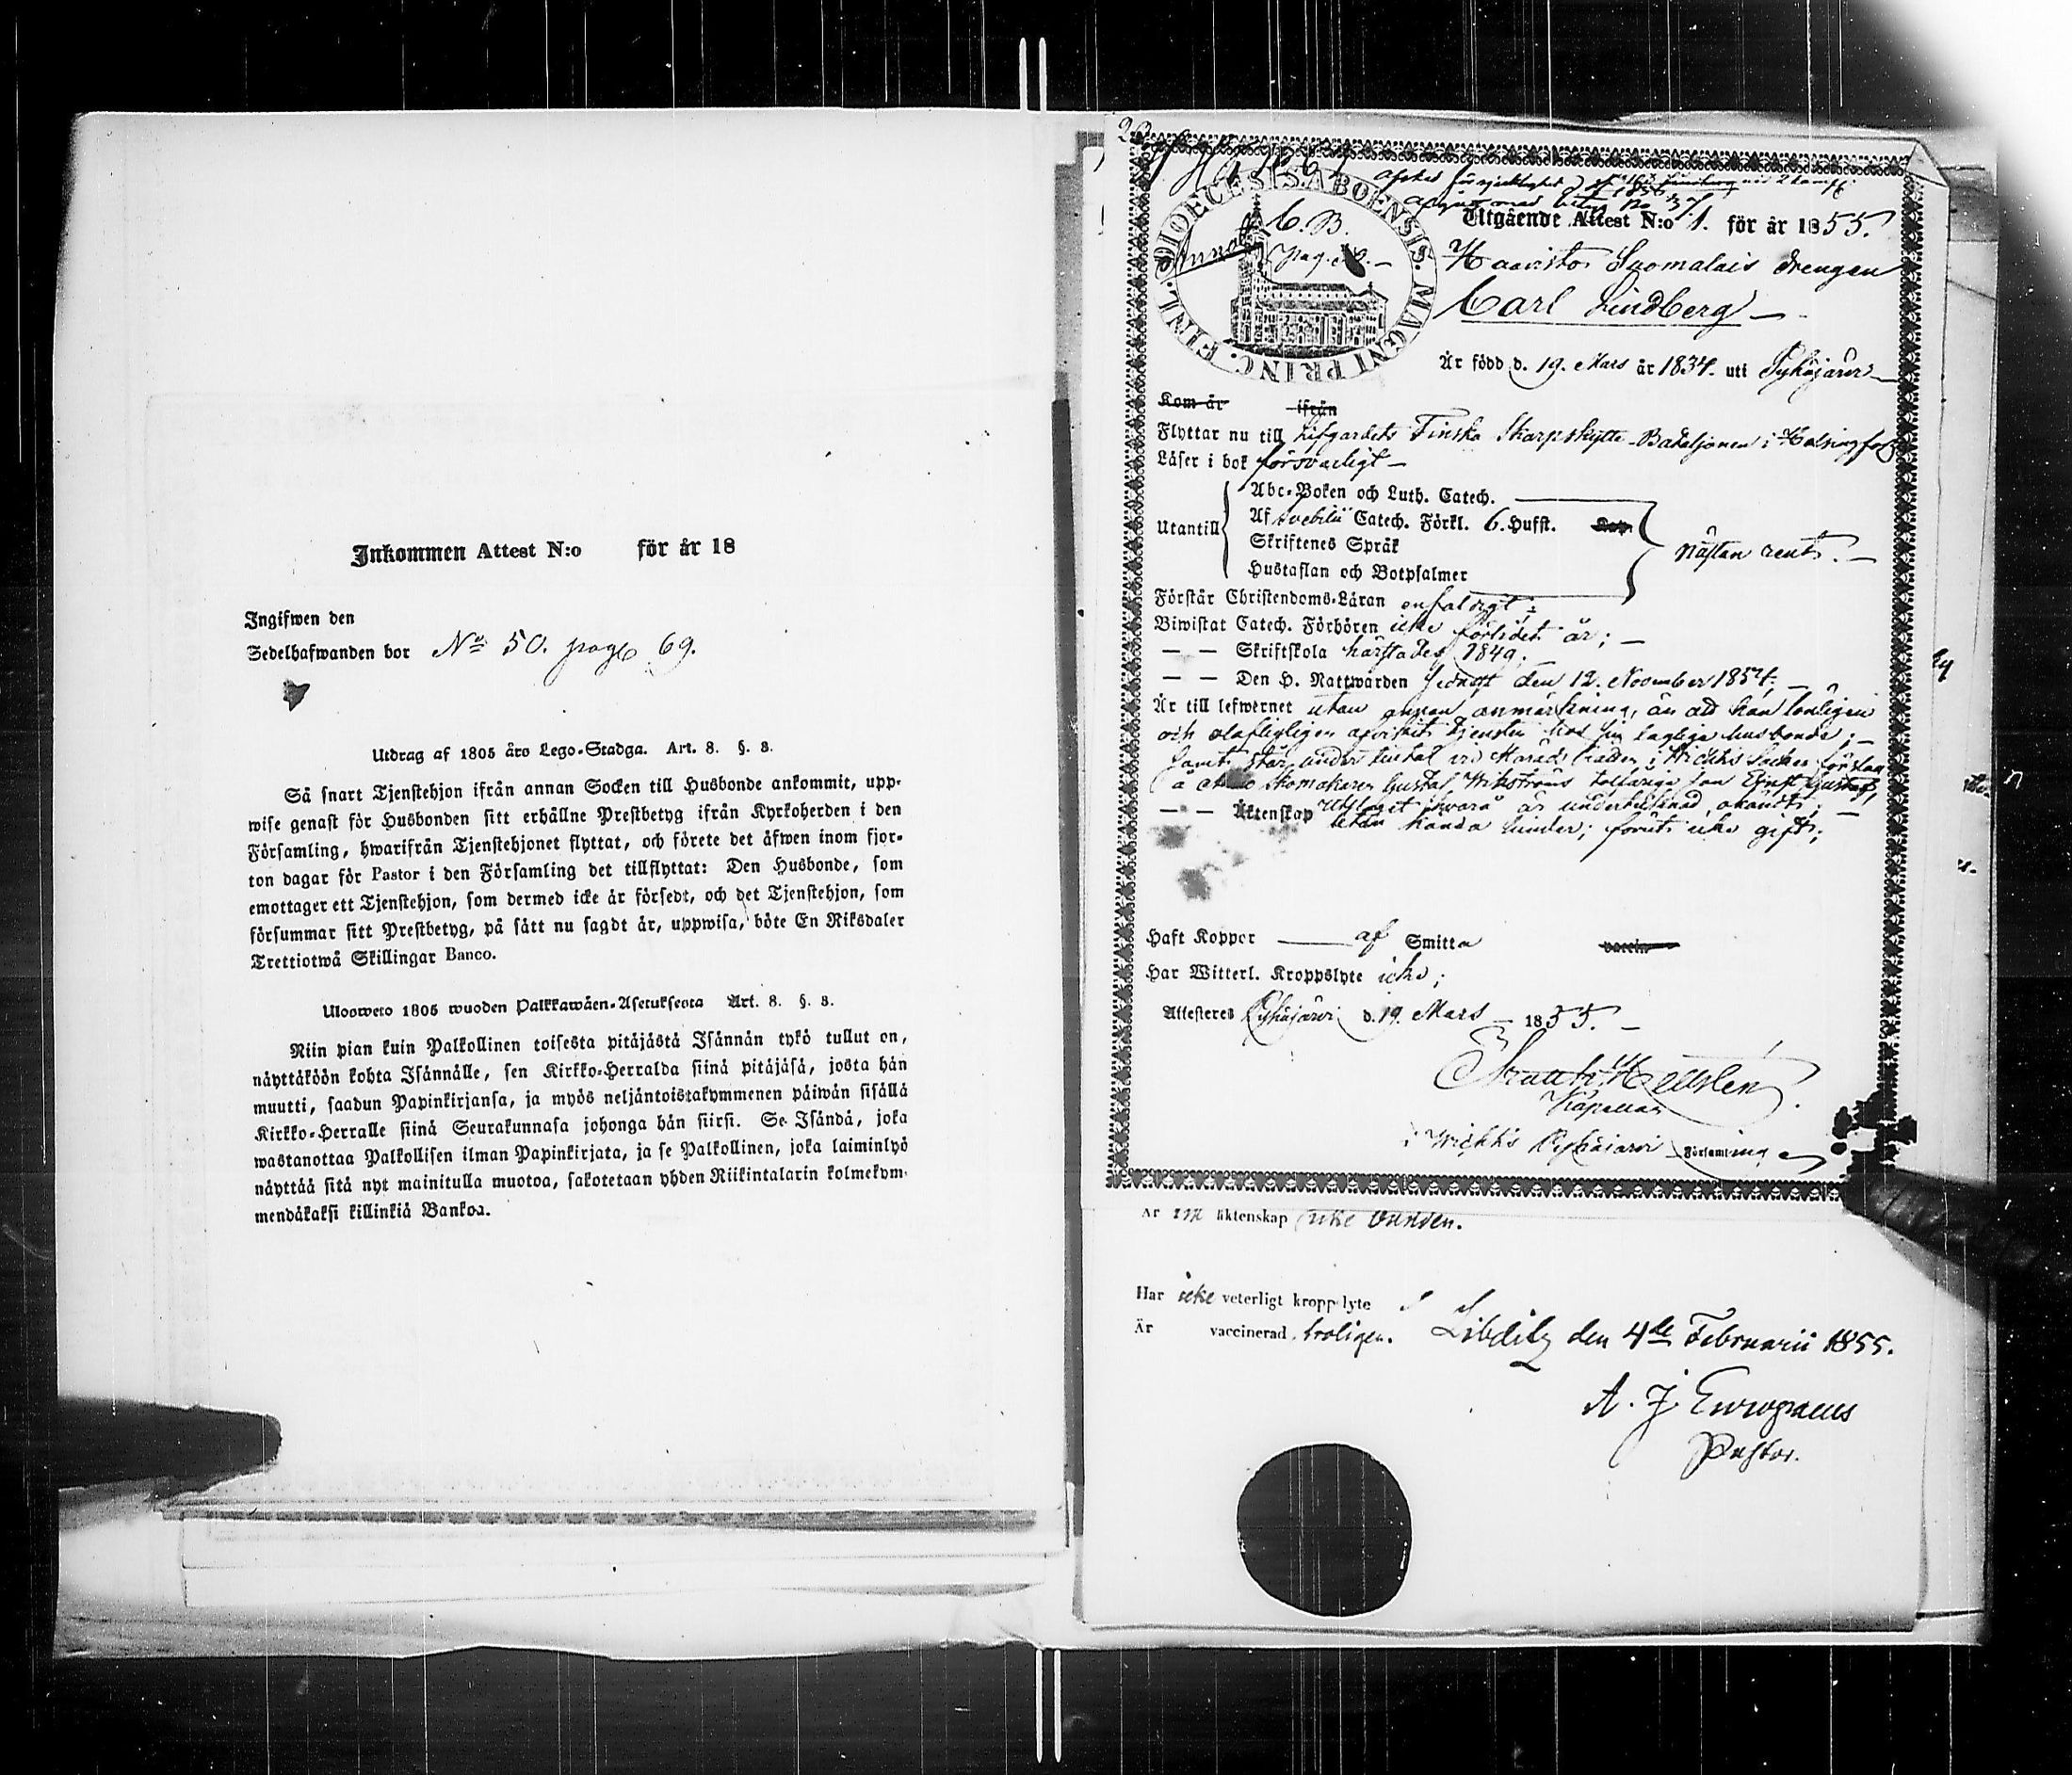 Inkommen Attest N:o för år 18
Ingifwen den
Sedelhafwanden bor No 50. page 69.
Utdrag af 1805 års Lego-Stadga. Art. 8. §. 8.
Så snart Tjenstehjon ifrån annan Socken till Husbonde ankommit, upp-
wise genast för Husbonden sitt erhållne Prestbetyg ifrån Kyrkoherden i den
Församling, hwarifrån Tjenstehjonet flyttat, och förete det äfwen inom fjor-
ton dagar för Pastor i den Församling det tillflyttat: Den Husbonde, som
emottager ett Tjenstehjon, som dermed icke är försedt, och det Tjenstehjon, som
försummar sitt Prestbetyg, på sätt nu sagdt är, uppwisa, böte En Riksdaler
Trettiotwå Skillingar Banco.
Ulosweto 1805 wuoden Palkkawäen-Asetuksesta Art. 8. §. 8.
Niin pian kuin Palkollinen toisesta pitäjästä Isännän tykö tullut on,
näyttäköön kohta Isännälle, sen Kirkko-Herralda siinä pitäjäsä, josta hän
muutti, saadun Papinkirjansa, ja myös neljäntoistakymmenen päiwän sisällä
Kirkko-Herralle siinä Seurakunnasa johonga hän siirsi. Se Isändä, joka
wastanottaa Palkollisen ilman Papinkirjata, ja se Palkollinen, joka laiminlyö
näyttää sitä nyt mainitulla muotoa, sakotetaan yhden Riikintalarin kolmekym-
mendäkaksi killinkiä Bankoa.
DIOECESIS ABOENSIS. MAGNI PRINC. FINL.
C. B.
pag.
Utgående Attest N:o 1. för år 1855.
Haavisto Suomalais drengen
Carl Lindberg
Är född d. 19. Mars år 1834. uti Pyhäjärvi
Kom år ifrån
Flyttar nu till Lifgardets Finska Skarpskytte-Bataljonen i Helsingfors
Läser i bok försvarligt
Abc-Boken och Luth. Catech.
Utantill Af Svebilii Catech. Förkl. 6. Hufst.
Skriftenes Språk
Hustaflan och Botpsalmer
nästan rent.
Förstår Christendoms-Läran enfaldigt;
Biwistat Catech. Förhören icke förlidet år;
— — Skriftskola härstädes 1849;
— — Den H. Nattwarden sednast den 12. November 1854;
Är till lefwernet utan annan anmärkning, än att han lönligen
och olofligligen afvikit tjensten hos sin laglige husbonde;
samt står under tiltal vid Härads Rätten i Wichtis Socken för slag
å Skomakaren Gustaf Wikströms son Ernst Gustaf,
Utslaget hvarå är undertecknad okändt;
— — Äktenskap utan kända hinder; förut icke gift;
Haft Koppor af Smitta
Har Witterl. Kroppslyte icke;
Attesteres Pyhäjärvi d. 19. Mars 1855.
Kapellan
i Wichtis Pyhäjärvi Församling
Är till äktenskap icke bunden.
Har icke veterligt kroppslyte
Är vaccinerad troligen. Libelitz den 4de Februarii 1855.
A. J. Europaeus
Pastor.